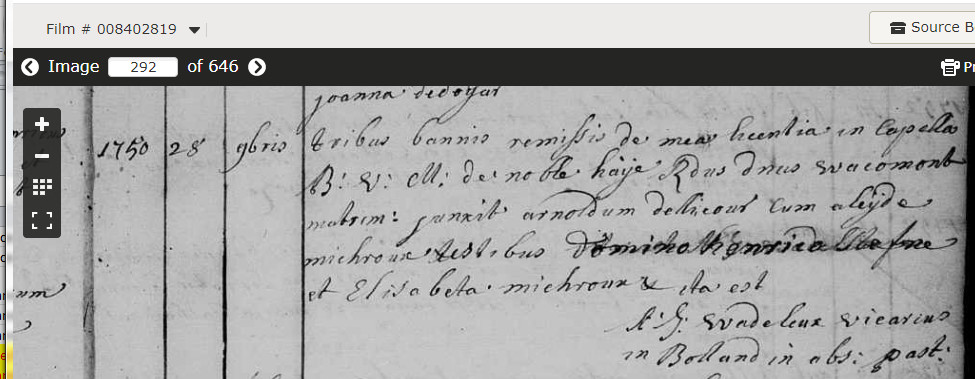 Film # 008402819
Source B
Image 292 of 646
Pr
joanna dedoyar
1750 28 9bris tribus bannis remissis de mea licentia in Capella
B: V: M: de noble haÿe Rdus Dnus Wacomont
matrim: junxit arnoldum dellicour cum aleÿde
michroux testibus Domino henrico
et Elisabeta michroux & ita est
wadeleux vicarius
in Bolland in abs: past: